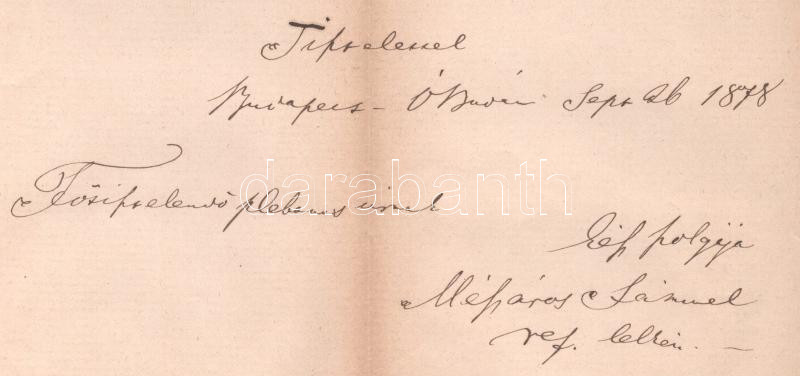 Tisztelessel
Budapest - Ó Budán Sept 26 1878
Főtisztelendő plebanos úrnak
kész szolgája
Mészáros Sámuel
ref. lelkész.
darabanth